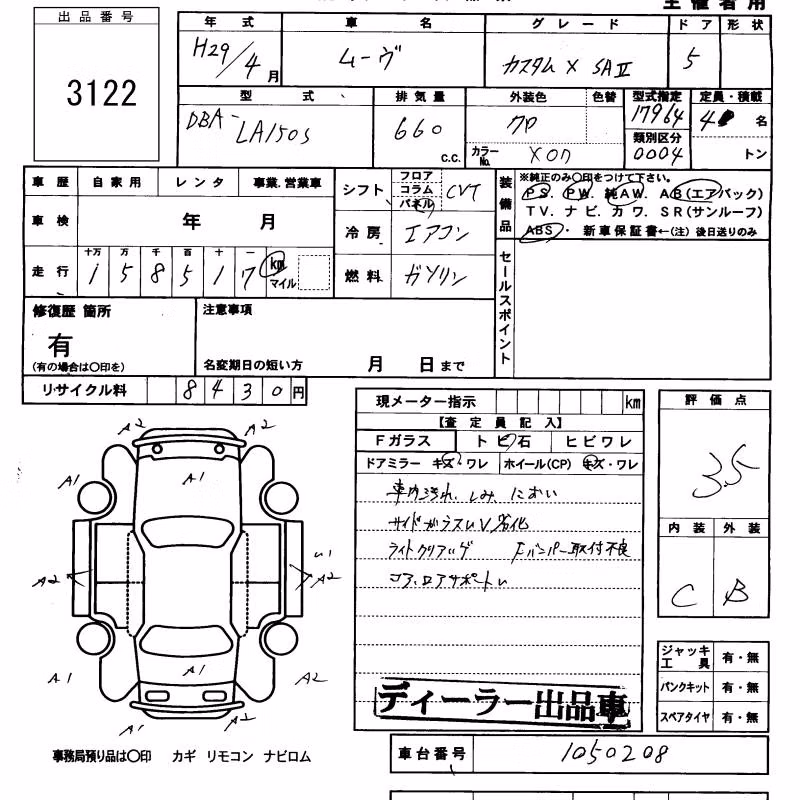 主催者用
出品番号
3122
年式 車名 グレード ドア 形状
H29/4月 ムーヴ カスタム X SAⅡ 5
型式 排気量 外装色 色替 型式指定 定員・積載
DBA-LA150S 660 c.c. 17964 4名
カラーNo. 類別区分 トン
X07 0004
車歴 自家用 レンタ 事業.営業車
車検 年 月
走行 十万 万 千 百 十 一 km マイル
1 5 8 5 1 7
シフト フロア コラム パネル CVT
冷房 エアコン
燃料 ガソリン
装備品
※純正のみ○印をつけて下さい。
PS. PW. 純AW. AB(エアバック)
TV. ナビ. カワ. SR(サンルーフ)
ABS・ 新車保証書←(注) 後日送りのみ
セールスポイント
修復歴 箇所
有
(有の場合は○印を)
注意事項
名変期日の短い方 月 日まで
リサイクル料 8430円
現メーター指示 km
【査定員記入】
Fガラス トビ石 ヒビワレ
ドアミラー キズ・ワレ ホイール(CP) キズ・ワレ
車内汚れ、しみ、におい
サイドガラスUV劣化
Fバンパー取付不良
評価点
3.5
内装 外装
C B
A2 A2
A1 A1
A2 U1
A2
A1 A1 A2
A1 A2
ジャッキ工具 有・無
パンクキット 有・無
スペアタイヤ 有・無
ディーラー出品車
事務局預り品は○印 カギ リモコン ナビロム
車台番号 1050208